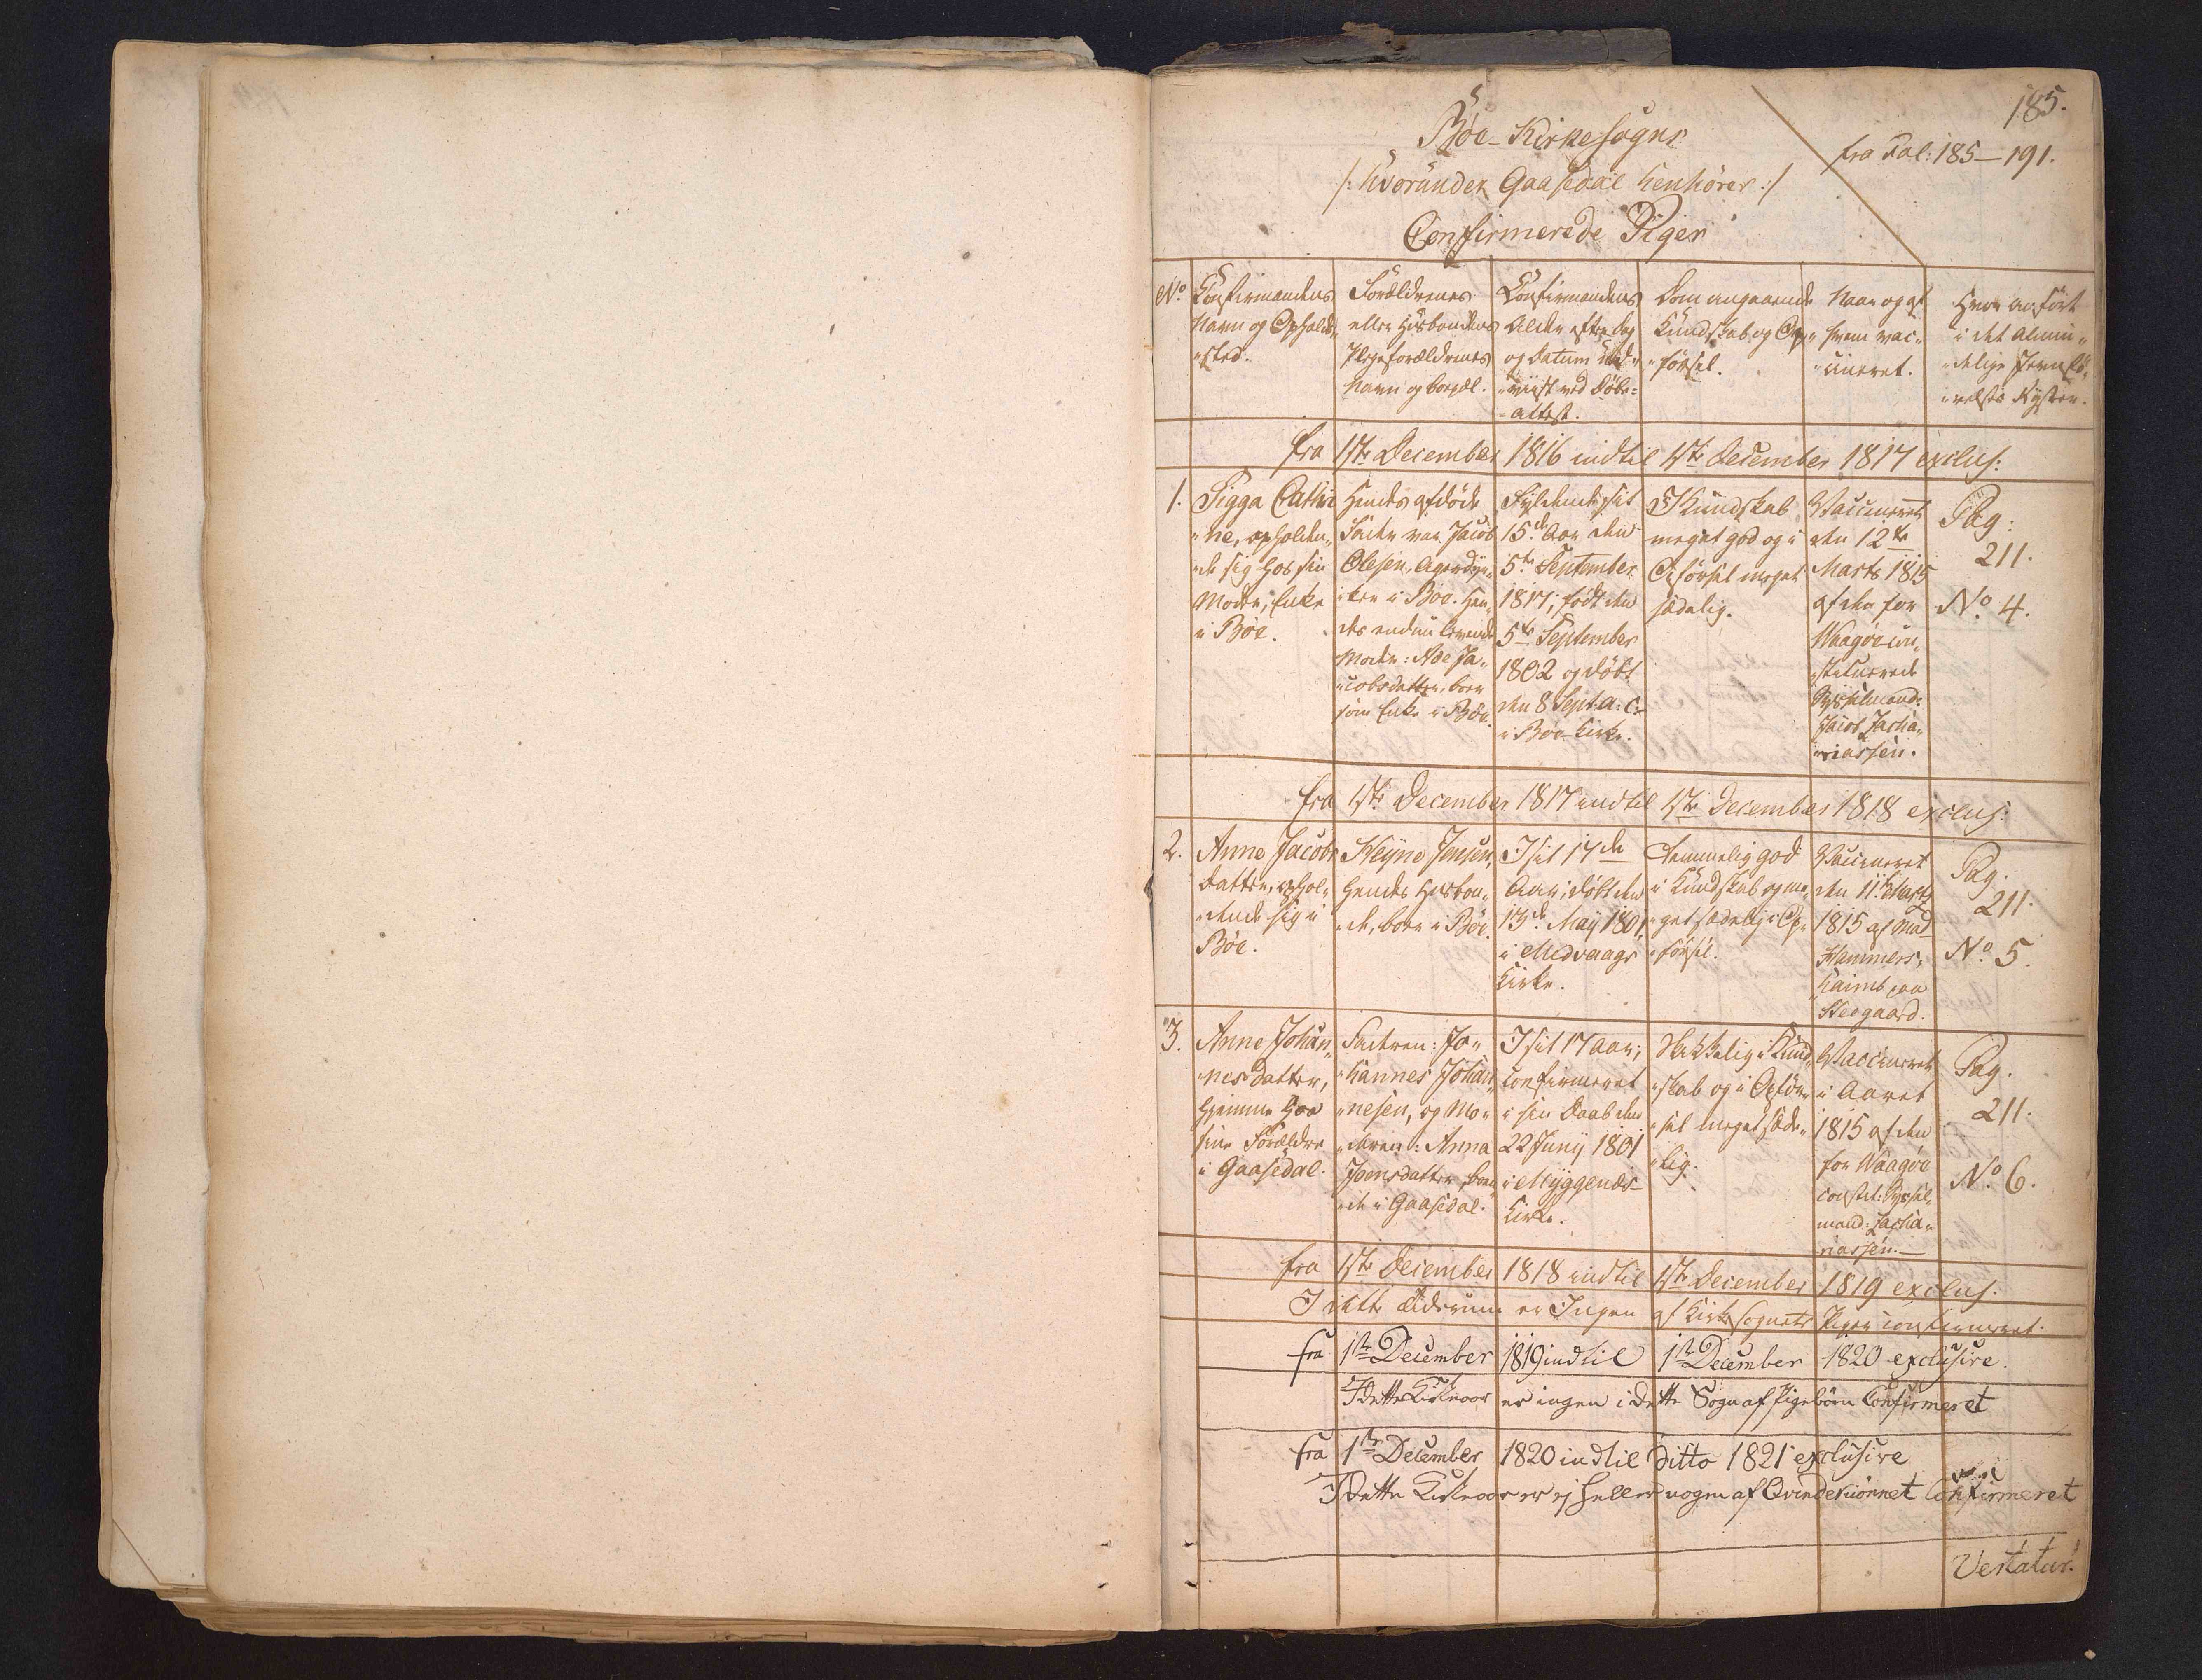 185.
fra Fol: 185 — 191.
Bøe-Kirkesogns
/: hvorunder Gaasedal henhører :/
Confirmerede Piger
No.
Confirmandens
Navn og Opholds„
„sted.
Forældrenes
eller Huusbondens
Pleieforældrenes
Navn og Boepæl.
Confirmandens
Alder efter Dag
og Datum
„viist ved Døbe-
-attest.
Dom angaaende
Kundskab og Op„
„førsel.
Naar og af
hvem vac„
„cineret.
Hvor anført
i det almin„
„delige Jevnfø„
„relses Register.
fra 1ste December 1816 indtil 1ste December 1817 exclus:
1.
Sigga Cathri
„ne, opholden„
„de sig hos sin
Moder, Enke
i Bøe.
Hendes afdøde
Fader var Jacob
Olesen, Agerdyr„
„ker i Bøe. Hen„
des endnu levende
Moder: Ade Ja„
„cobsdatter, boer
som Enke i Bøe.
Fyldende sit
15de Aar den
5te September
1817; født den
5te September
1802 og døbt
den 8 Sept: a: c:
i Bøe-Kirke.
I Kundskab
meget god og i
Opførsel meget
sædelig.
Vaccineret
den 12te
Marts 1815
af den for
Waagøe con„
„stituerede
Sysselmand:
Jacob Zacha„
„riassen.
Pag:
211.
No. 4.
fra 1ste December 1817 indtil 1ste December 1818 exclus:
2.
Anne Jacobs
datter, ophol„
„dende sig i
Bøe.
Heyne Jensen,
hendes Huusbon„
„de, boer i Bøe.
I sit 17de
Aar; døbt den
13de May 1801,
i Midvaags
Kirke.
Temmelig god
i Kundskab og me„
„get sædelig i Op„
„førsel.
Vaccineret
den 11te Marts
1815 af Mad
Hammers„
„haimb paa
Steegaard.
Pag.
211.
No. 5.
3.
Anne Johan„
„nesdatter,
hiemme hos
sine Forældre
i Gaasedal.
Faderen: Jo„
„hannes Johan„
„nesen, og Mo„
„deren: Anna
Joensdatter, boen„
„de i Gaasedal.
I sit 17 Aar;
confirmeret
i sin Daab den
22 Juny 1801
i Myggenæs-
Kirke.
Skikkelig i Kund„
„skab og i Opfør„
„sel meget sæde„
„lig.
Vaccineret
i Aaret
1815 af den
for Waagøe
constit: Syssel„
mand: Zacha„
riassen. —
Pag.
211.
No. 6.
fra 1ste December 1818 indtil 1ste December 1819 exclus.
I dette Tidsrum er Ingen af Kirkesognets Piger confirmeret.
fra 1ste December 1819 indtil 1ste December 1820 exclusive.
I dette Kirkeaar er ingen i dette Sogn af Pigebørn Confirmeret
fra 1ste December 1820 indtil ditto 1821 exclusive
I dette Kirkeaar er ej heller nogen af Qvindekiønnet Confirmeret
Vertatur!